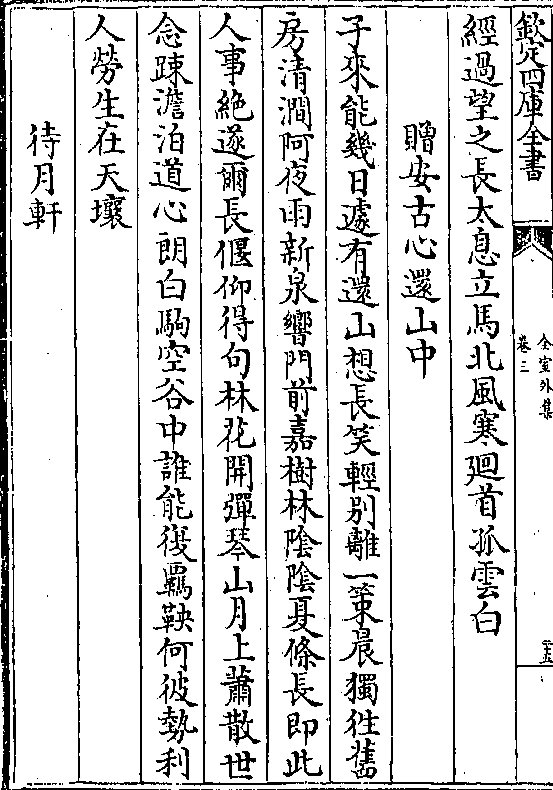 欽定四庫全書
全室外集
卷三
二十五
經過望之長太息立馬北風寒廻首孤雲白
贈安古心還山中
子來能幾日遽有還山想長笑輕别離一策晨獨徃舊
房清澗阿夜雨新泉響門前嘉樹林陰陰夏條長即此
人事絶遂爾長偃仰得句林花開彈琴山月上蕭散世
念踈澹泊道心朗白駒空谷中誰能復羈鞅何彼勢利
人勞生在天壤
待月軒